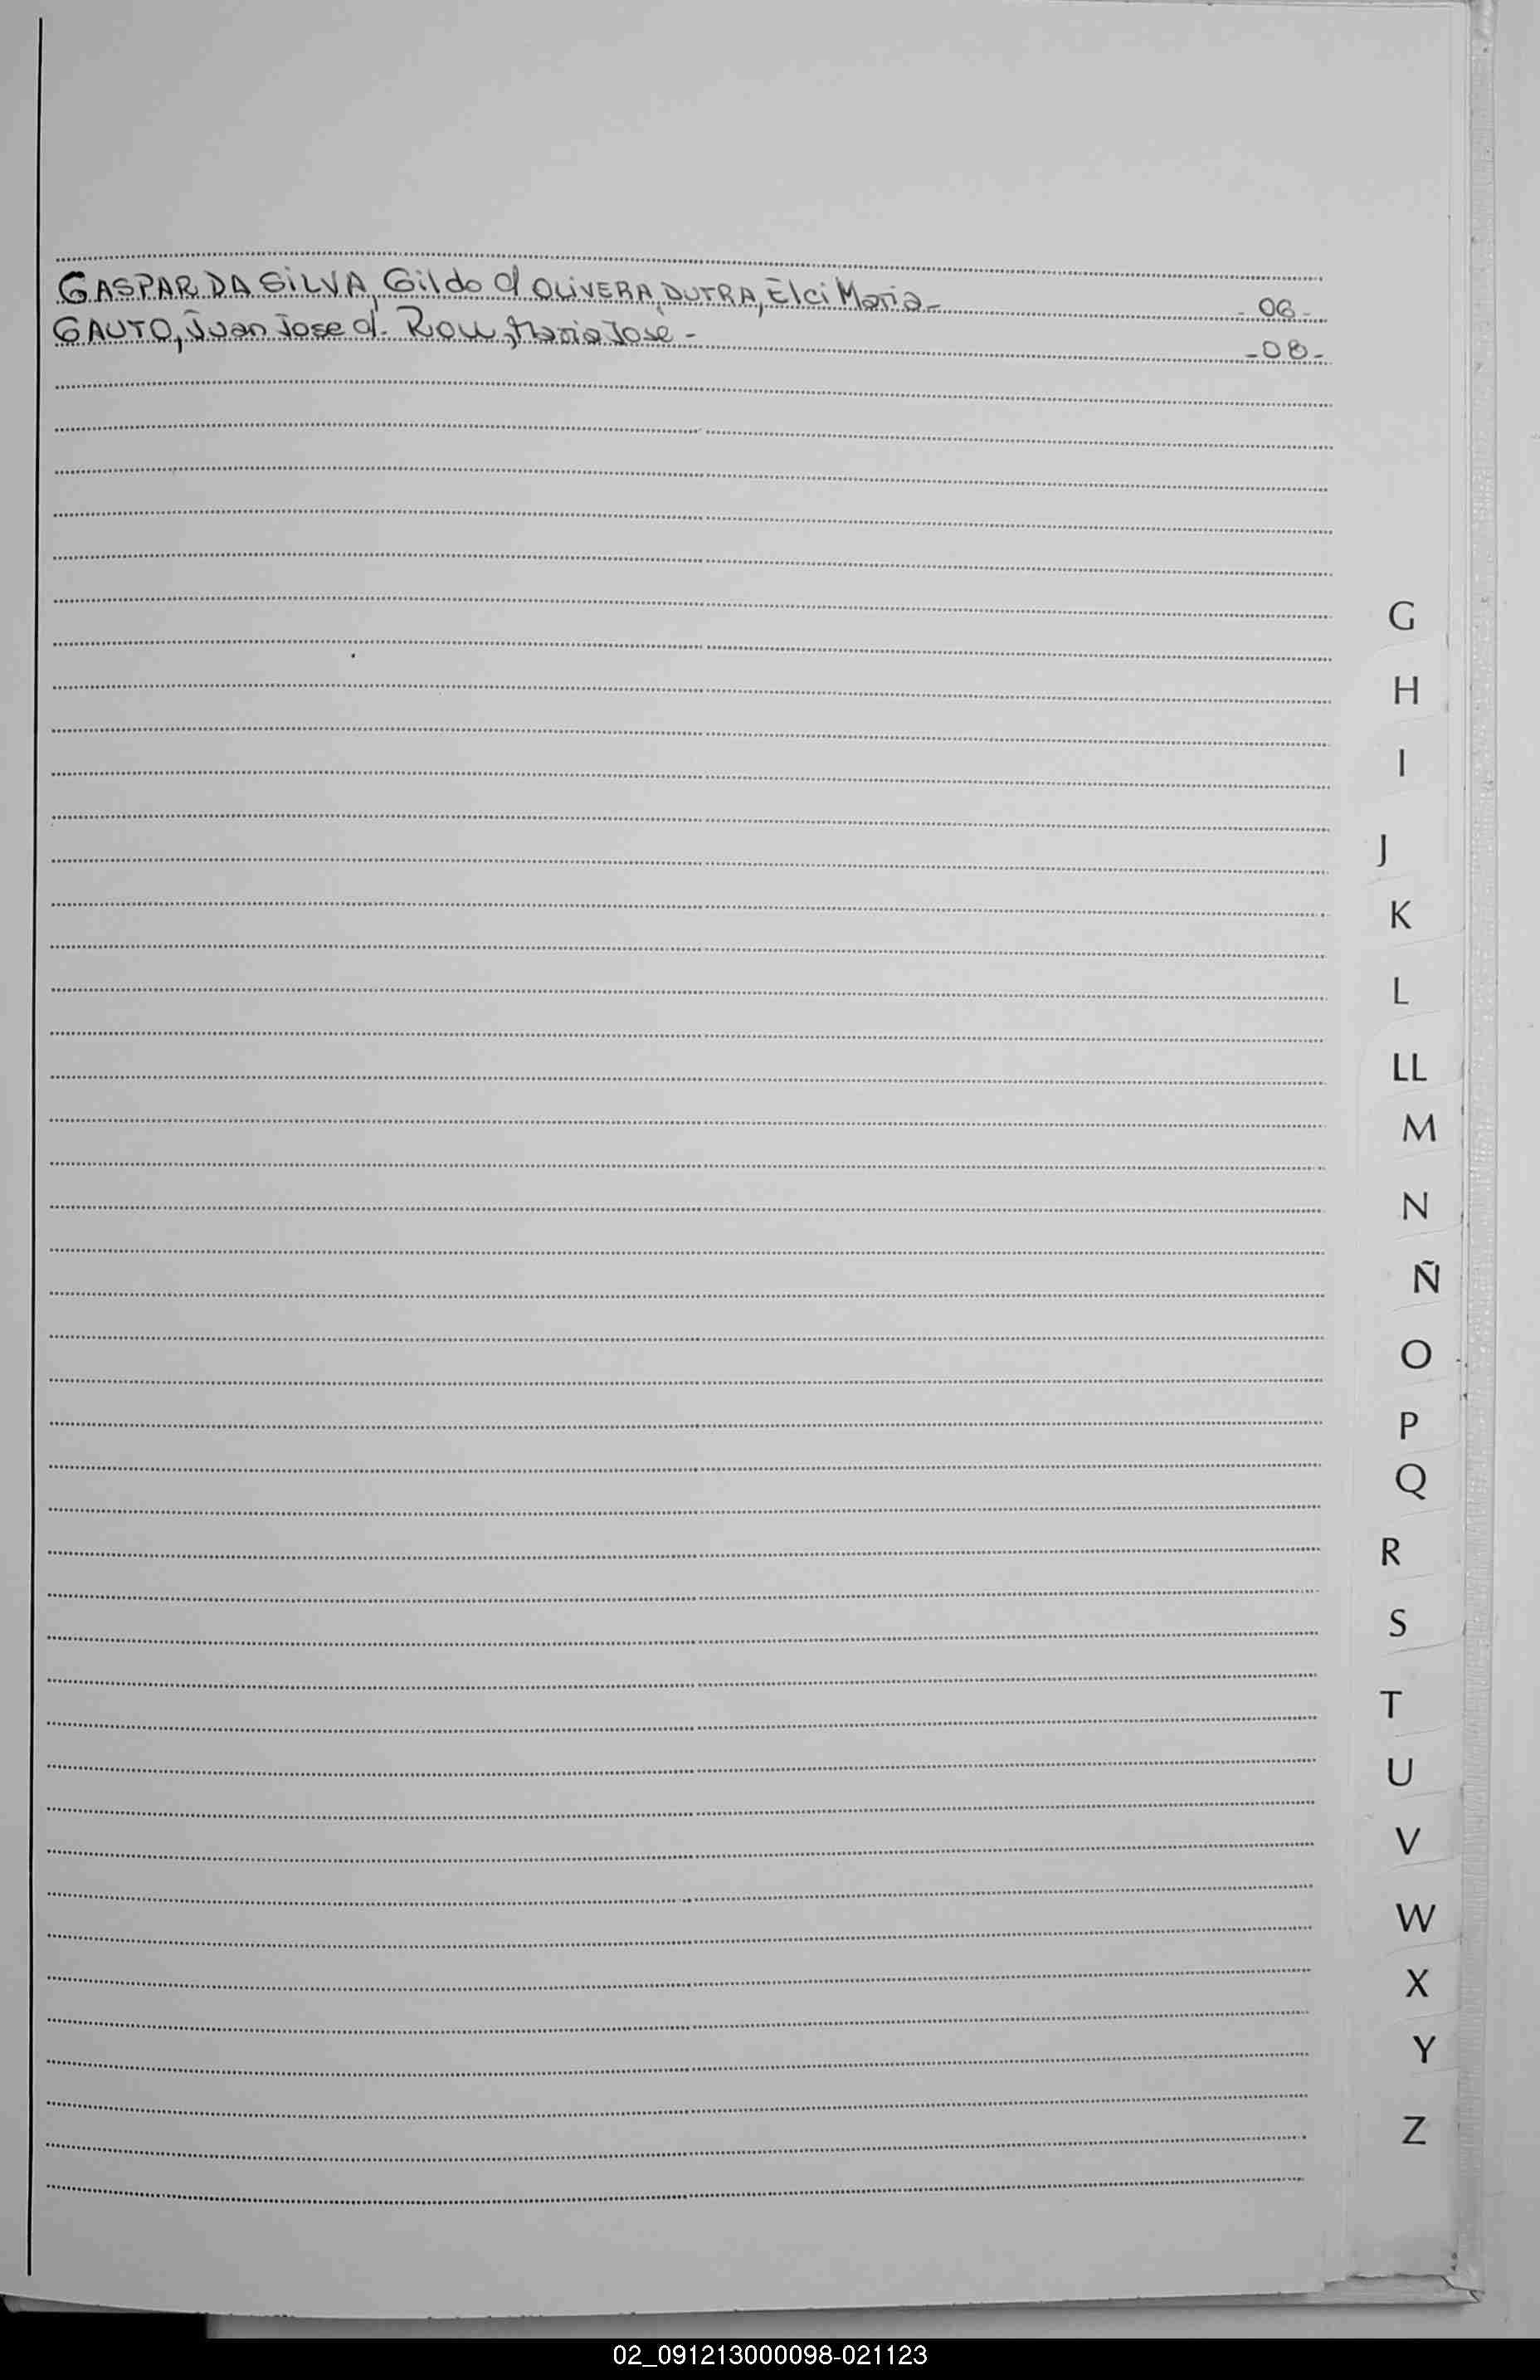 GASPAR DA SILVA, Gildo c/ OLIVERA DUTRA, Elci Maria- -06-
GAUTO, Juan Jose c/. Maria José - -08-
G
H
I
J
K
L
LL
M
N
Ñ
O
P
Q
R
S
T
U
V
W
X
Y
Z
02_091213000098-021123